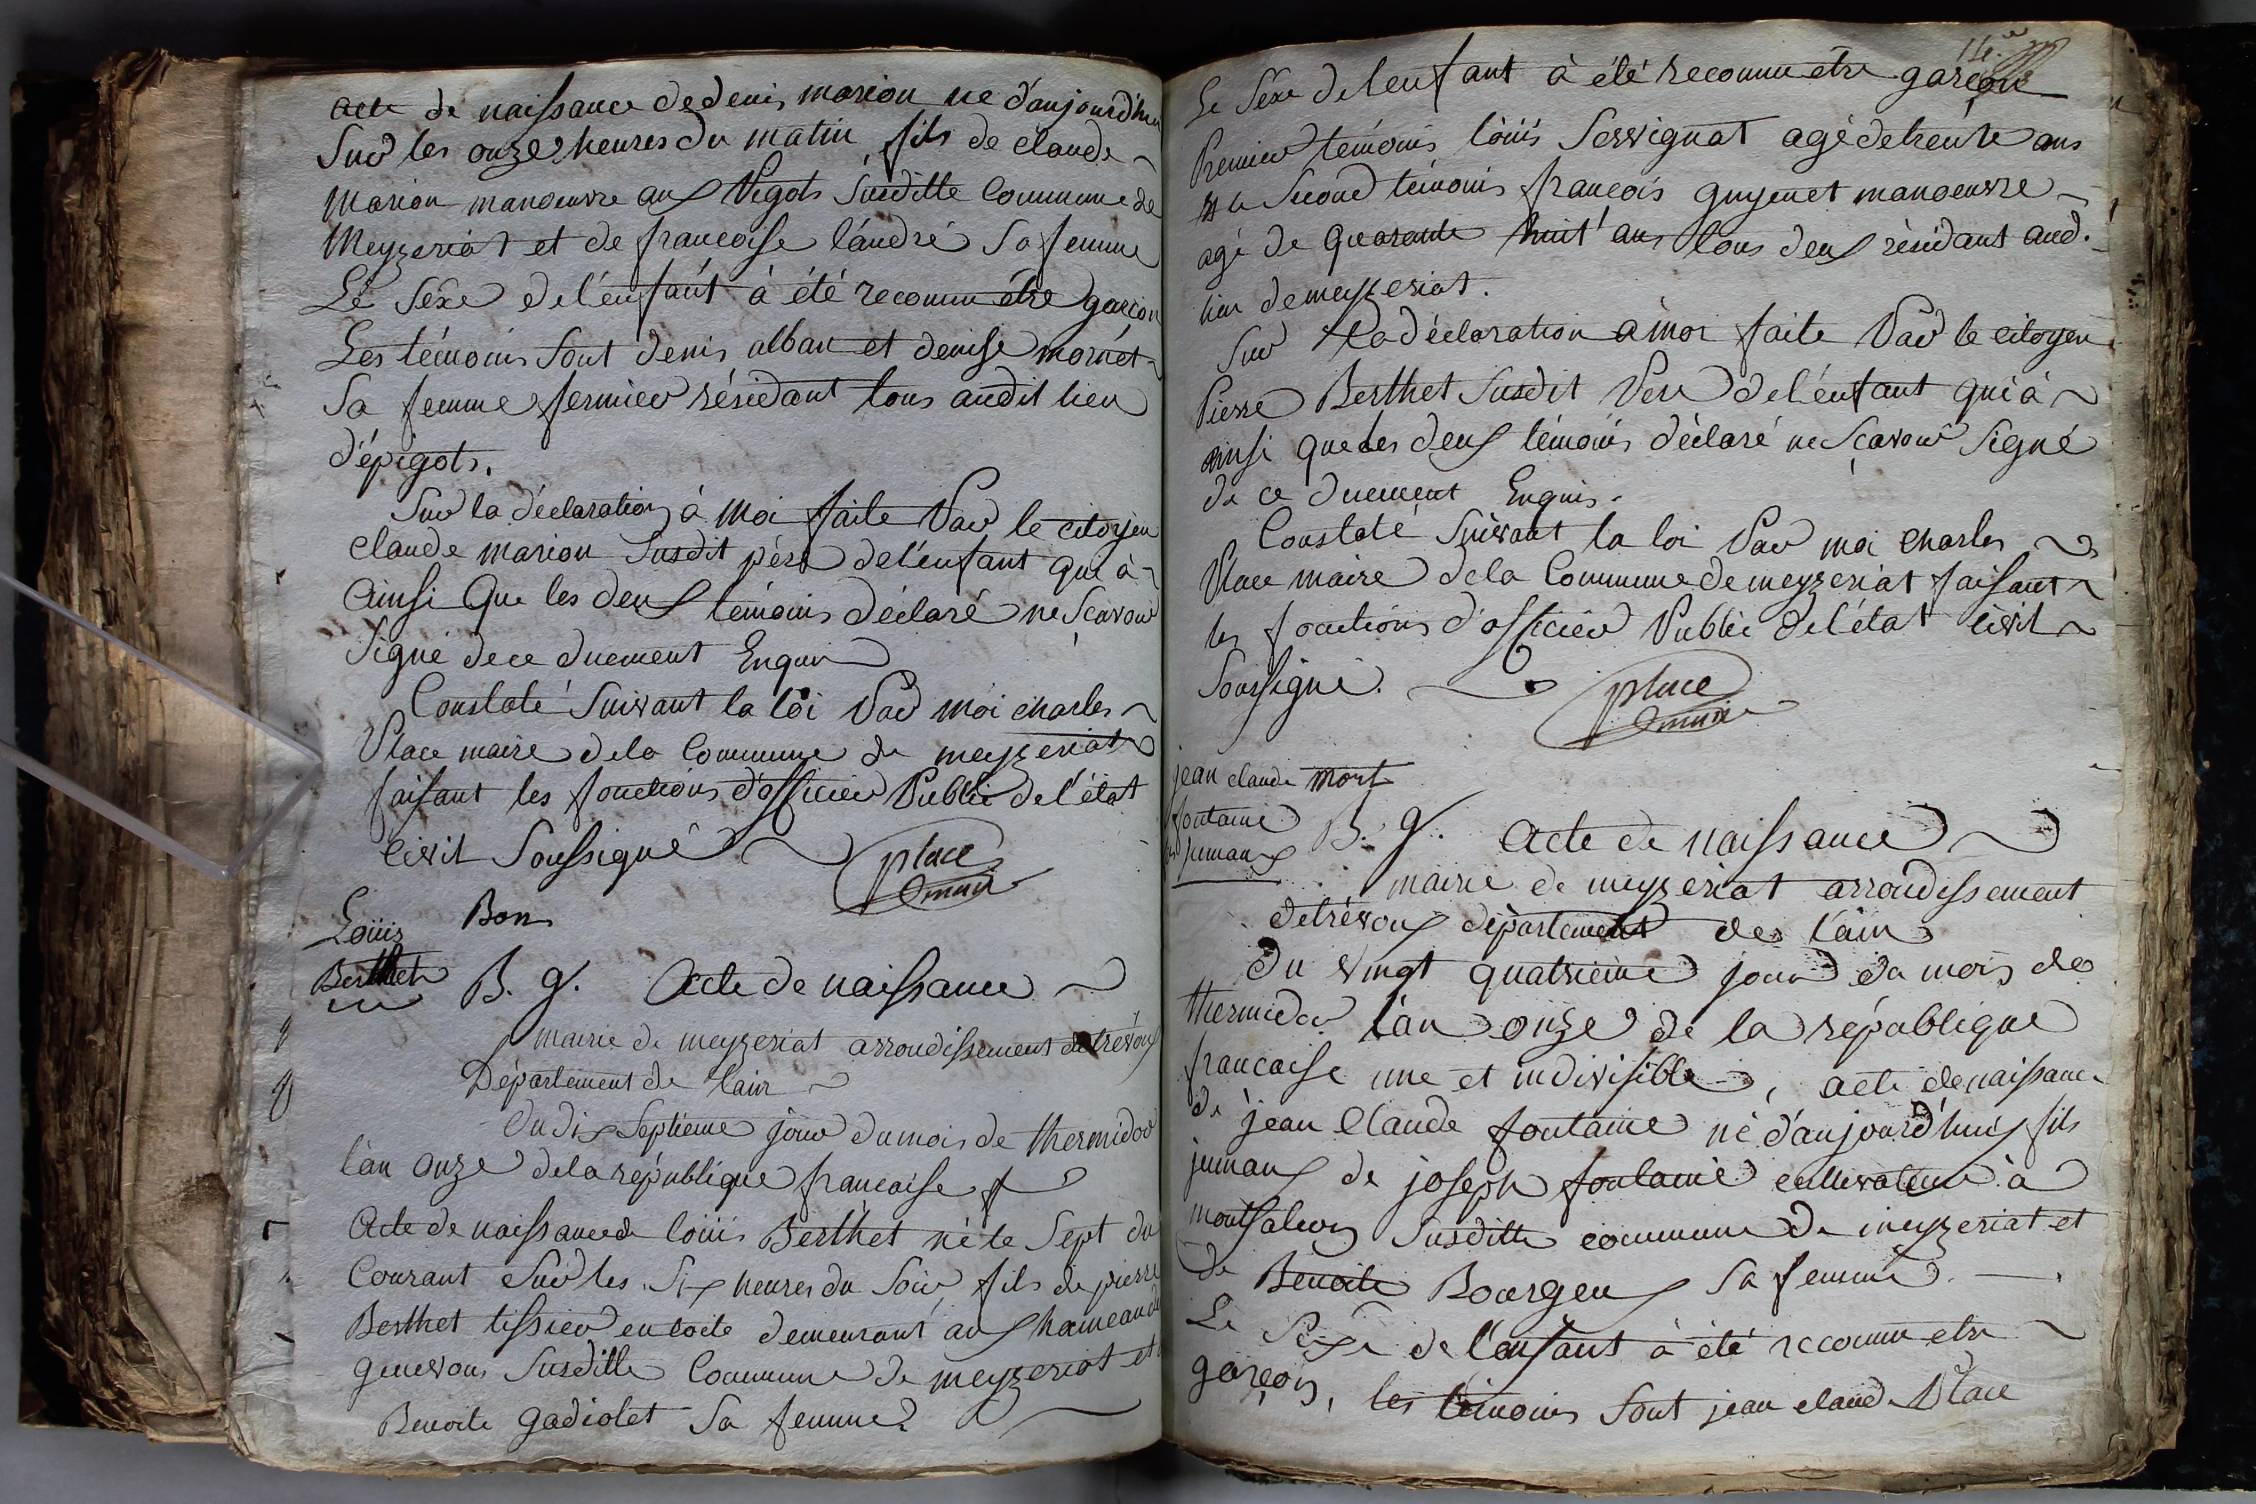 acte de naissance de denis marion né d'aujourd'hui
Sur les onze heures du matin, fils de claude
marion manoeuvre aux Pigots Susditte Commune de
Meyzeriat et de francoise l'andré Sa femme
Le Sexe de l'enfant à été reconnu être garçon
Les témoins Sont denis alban et denise mornet
Sa femme fermier résidant tous audit lieu
d'épigots.
Sur la déclaration à moi faite Par le citoyen
claude marion Susdit père de l'enfant qui à
Ainsi Que les deux témoins déclaré ne Scavoir
Signé de ce duement Enquis
Constaté Suivant la loi Par moi charles
Place maire de la Commune de meyzeriat
faisant les fonctions d'officier Public de l'état
civil Soussigné
place
maire
Loüis
Berthet
Bon
B. g. Acte de naissance
mairie de meyzeriat arrondissement de trévoux
Département de l'ain
Du dix Septieme jour du mois de thermidor
l'an onze de la république francaise
Acte de naissance de loüis Berthet né le Sept du
Courant Sur les Six heures du Soir, fils de pierre
Berthet tissier en toile demeurant aux hameau de
genevous Susditte Commune de meyzeriat et
Benoite gadiolet Sa femme
14.e
Le Séxe de l'enfant à été reconnu etre garçon
Premier témoins loüis Servignat agé de trente ans
le Second témoins francois guyenet manoeuvre
agé de quarante huit ans tous deux résidant aud.
lieu de meyzeriat.
Sur la déclaration à moi faite Par le citoyen
Pierre Berthet Susdit Pere de l'enfant qui à
ainsi que les deux témoins déclaré ne Scavoir Signé
de ce duement Enquis.
Constaté Suivant la loi Par moi charles
Place maire de la Commune de meyzeriat faisant
les fonctions d'officier Public de l'état civil
Soussigné.
place
maire
jean claude mort
fontaine
jumaux
B. g. Acte de naissance
mairie de meyzeriat arrondissement
de trévoux département de l'ain
Du vingt quatrieme jour du mois de
thermidor l'an onze de la république
francaise une et indivisible, acte de naissance
de jean Claude fontaine né d'aujourd'hui fils
jumaux de joseph fontaine cultivateur à
montfalcon Susditte commune de meyzeriat et
de Benoite Bourgeux Sa femme.
Le Séxe de l'enfant à été reconnu etre
garçon, les témoins Sont jean claude Place